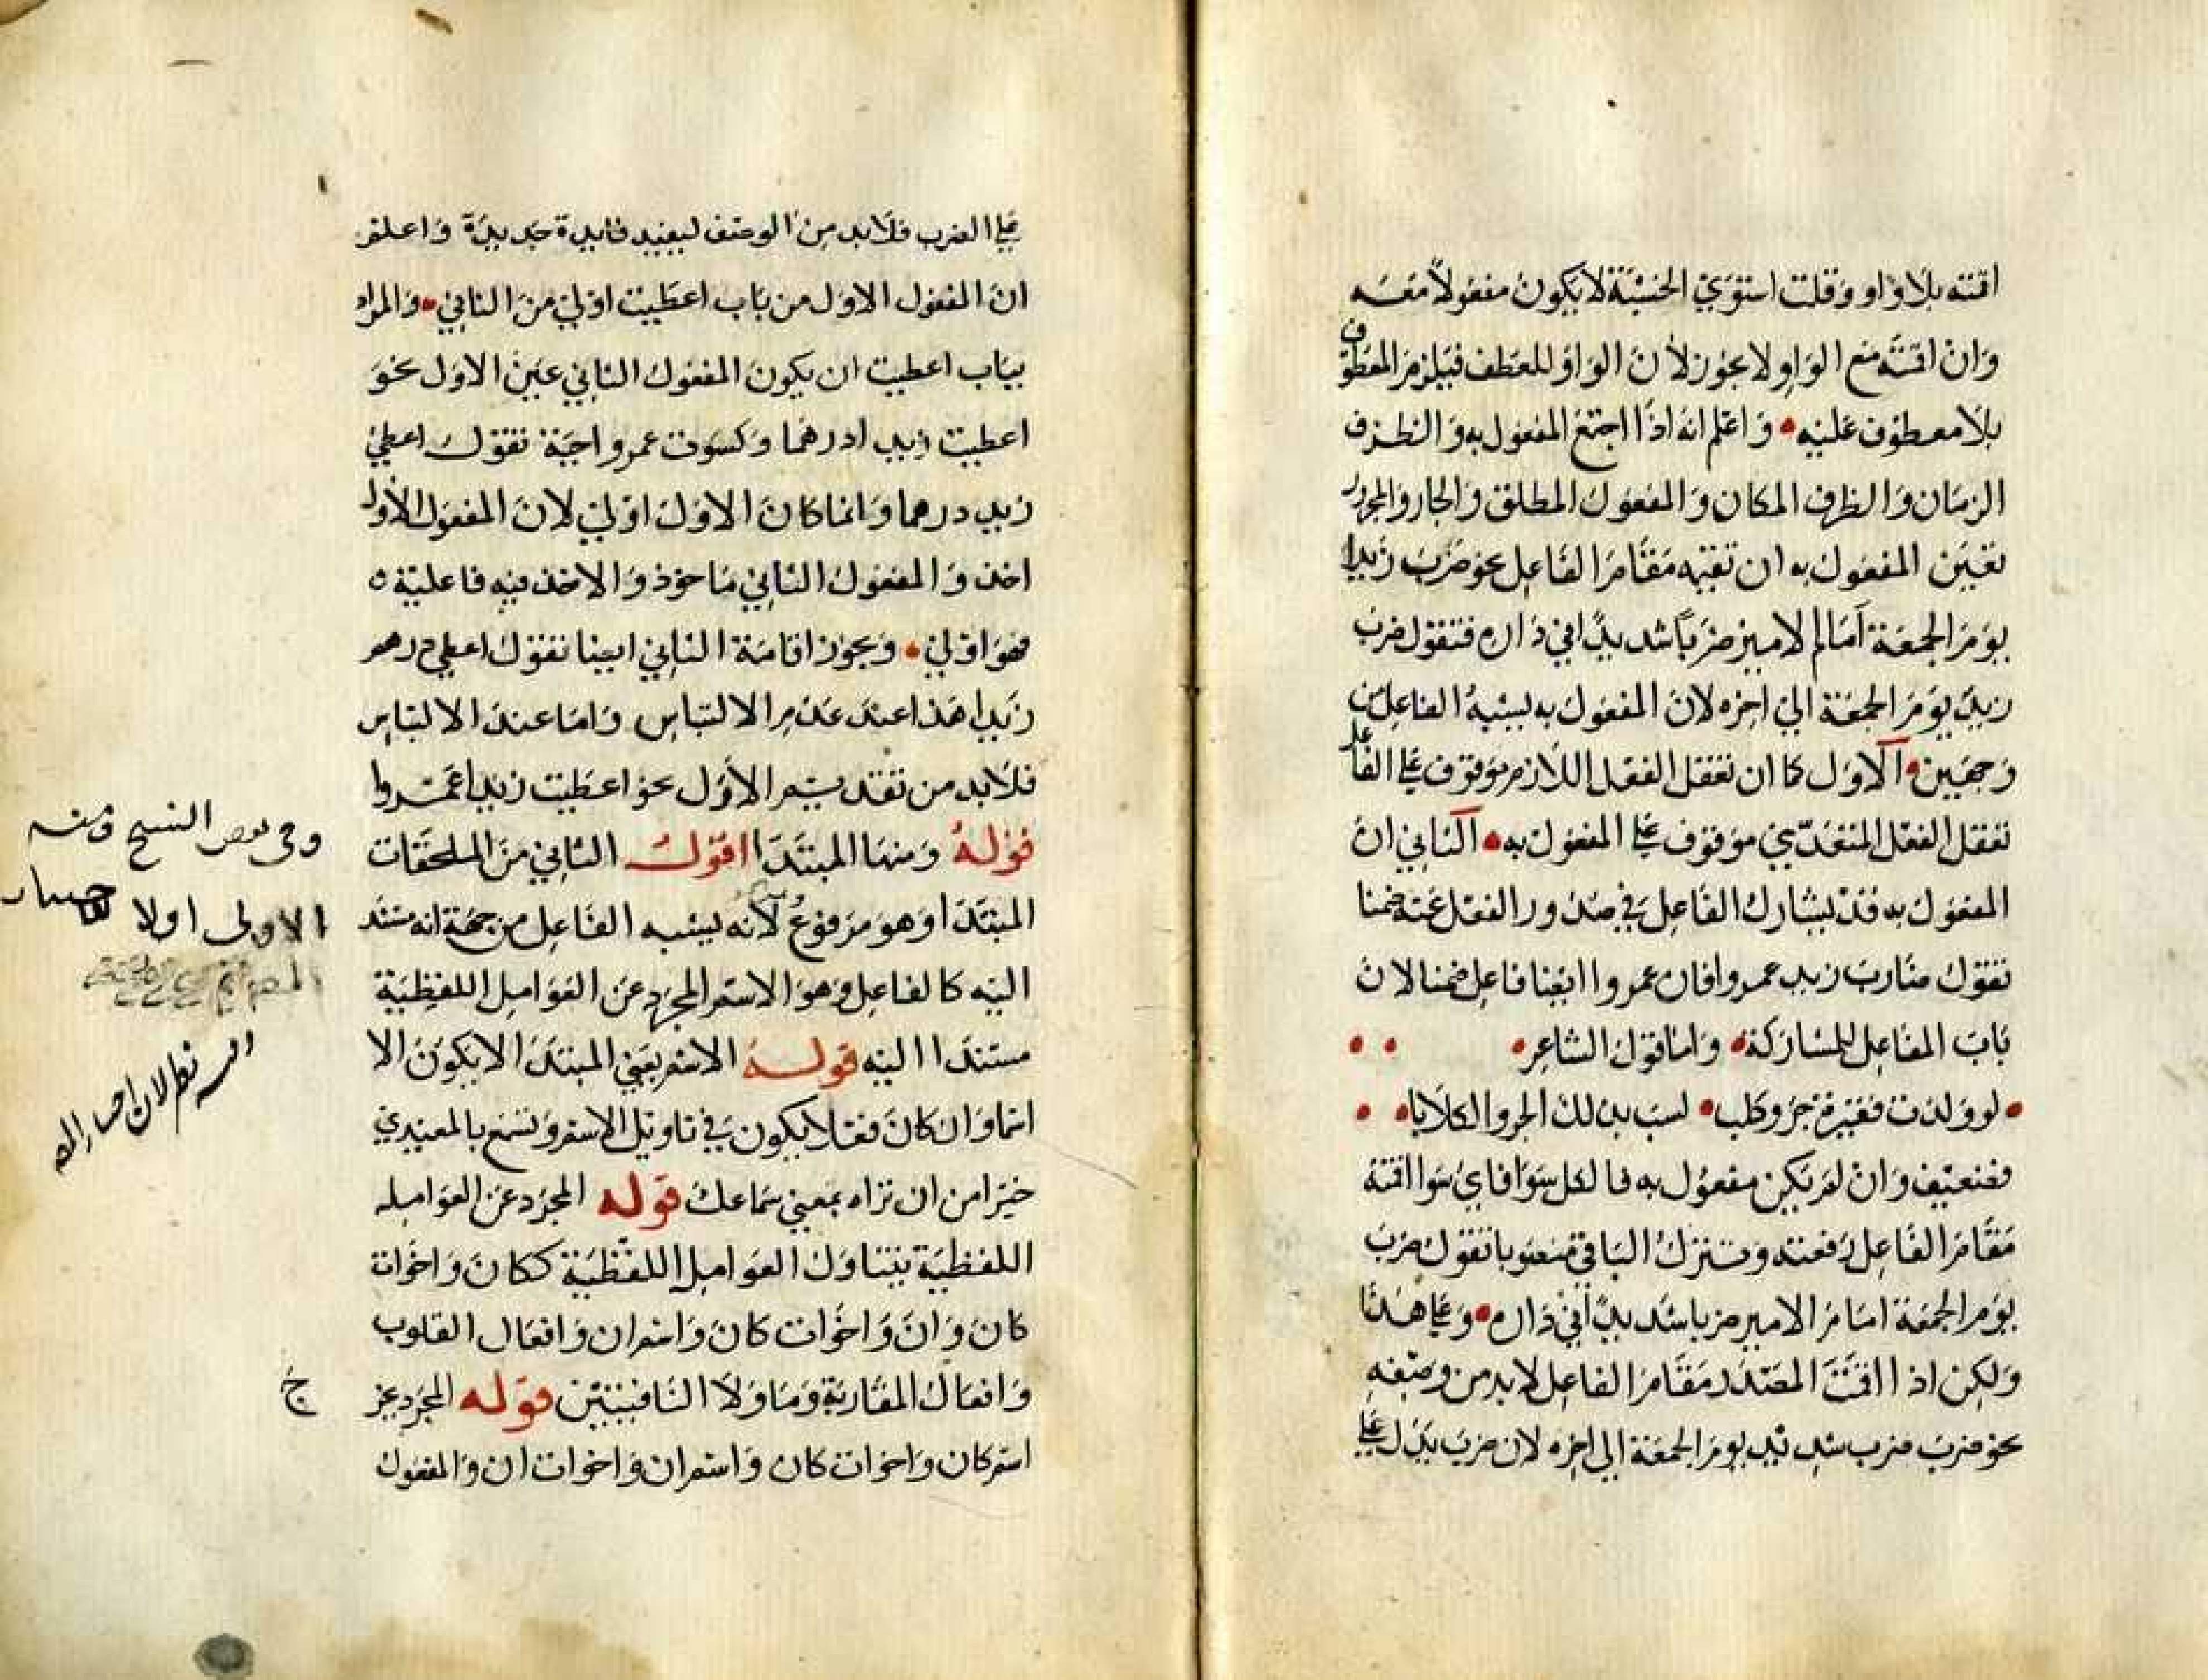 اقمته بلا واو وقلت استوي الخشبة لا يكون مفعولاً معه
وان اقمته مع الواو لا يجوز لأن الواو للعطف فيلزم المعطوف
بلا معطوف عليه • واعلم انه اذا اجتمع المفعول به والظرف
الزمان والظرف المكان والمفعول المطلق والجار والمجرور
تعين المفعول به ان تقيمه مقام الفاعل نحو ضرب زيدا
يوم الجمعة امام الامير ضرباً شديداً في داره فتقول ضرب
زيد يوم الجمعة الي اخره لان المفعول به يشبه الفاعل من
وجهين • الاول كما ان تعقل الفعل اللازم موقوف علي الفاعل
تعقل الفعل المتعدّي موقوف علي المفعول به • الثاني ان
المفعول به قد يشارك الفاعل في صدور الفعل عنه ضمنا
تقول ضارب زيد عمروا فان عمروا ايضا فاعل ضمنا لان
باب المفاعل للمشاركة • واما قول الشاعر •
• لو ولدت فقيرة جرو كلب • لسب بذلك الجرو الكلابا •
فضعيف وان لم يكن مفعول به فالكل سوا فاي سوا اقمته
مقام الفاعل رفعته وتترك الباقي منصوبا تقول ضرب
يوم الجمعة امام الامير ضربا شديدا في داره • وعلي هذا
ولكن اذا اقمت المصدر مقام الفاعل لابد من وصفه
نحو ضرب ضرب شديد يوم الجمعة الي اخره لان ضرب يدل علي
علي الضرب فلا بد من الوصف ليفيد فايدة جديدة واعلم
ان المفعول الاول من باب اعطيت اولي من الثاني • والمراد
بباب اعطيت ان يكون المفعول الثاني غير الاول نحو
اعطيت زيدا درهما وكسوت عمروا جبة تقول اعطي
زيد درهما وانما كان الاول اولي لان المفعول الأول
اخذ والمفعول الثاني ماخوذ والاخذ فيه فاعلية
فهو اولي • ويجوز اقامة الثاني ايضا تقول اعطي درهم
زيدا هذا عند عدم الالتباس واما عند الالتباس
فلابد من تقديم الأول نحو اعطيت زيدا عمروا
قوله ومنها المبتدا اقول الثاني من الملحقات
المبتدا وهو مرفوع لأنه يشبه الفاعل من جهة انه مسند
اليه كالفاعل وهو الاسم المجرد عن العوامل اللفظية
مسندا اليه قوله الاسم يعني المبتدا لا يكون الا
اسما وان كان فعلا يكون في تاويل الاسم وتسمع بالمعيدي
خيرا من ان تراه بمعني سماعك قوله المجرد عن العوامل
اللفظية يتناول العوامل اللفظية ككان واخوات
كان وان واخوات كان واسم ان وافعال القلوب
وافعال المقاربة وما ولا النافيتين قوله المجرد عن
اسم كان واخوات كان واسم ان واخوات ان والمفعول
وفي بعض النسخ
الاولى اولا